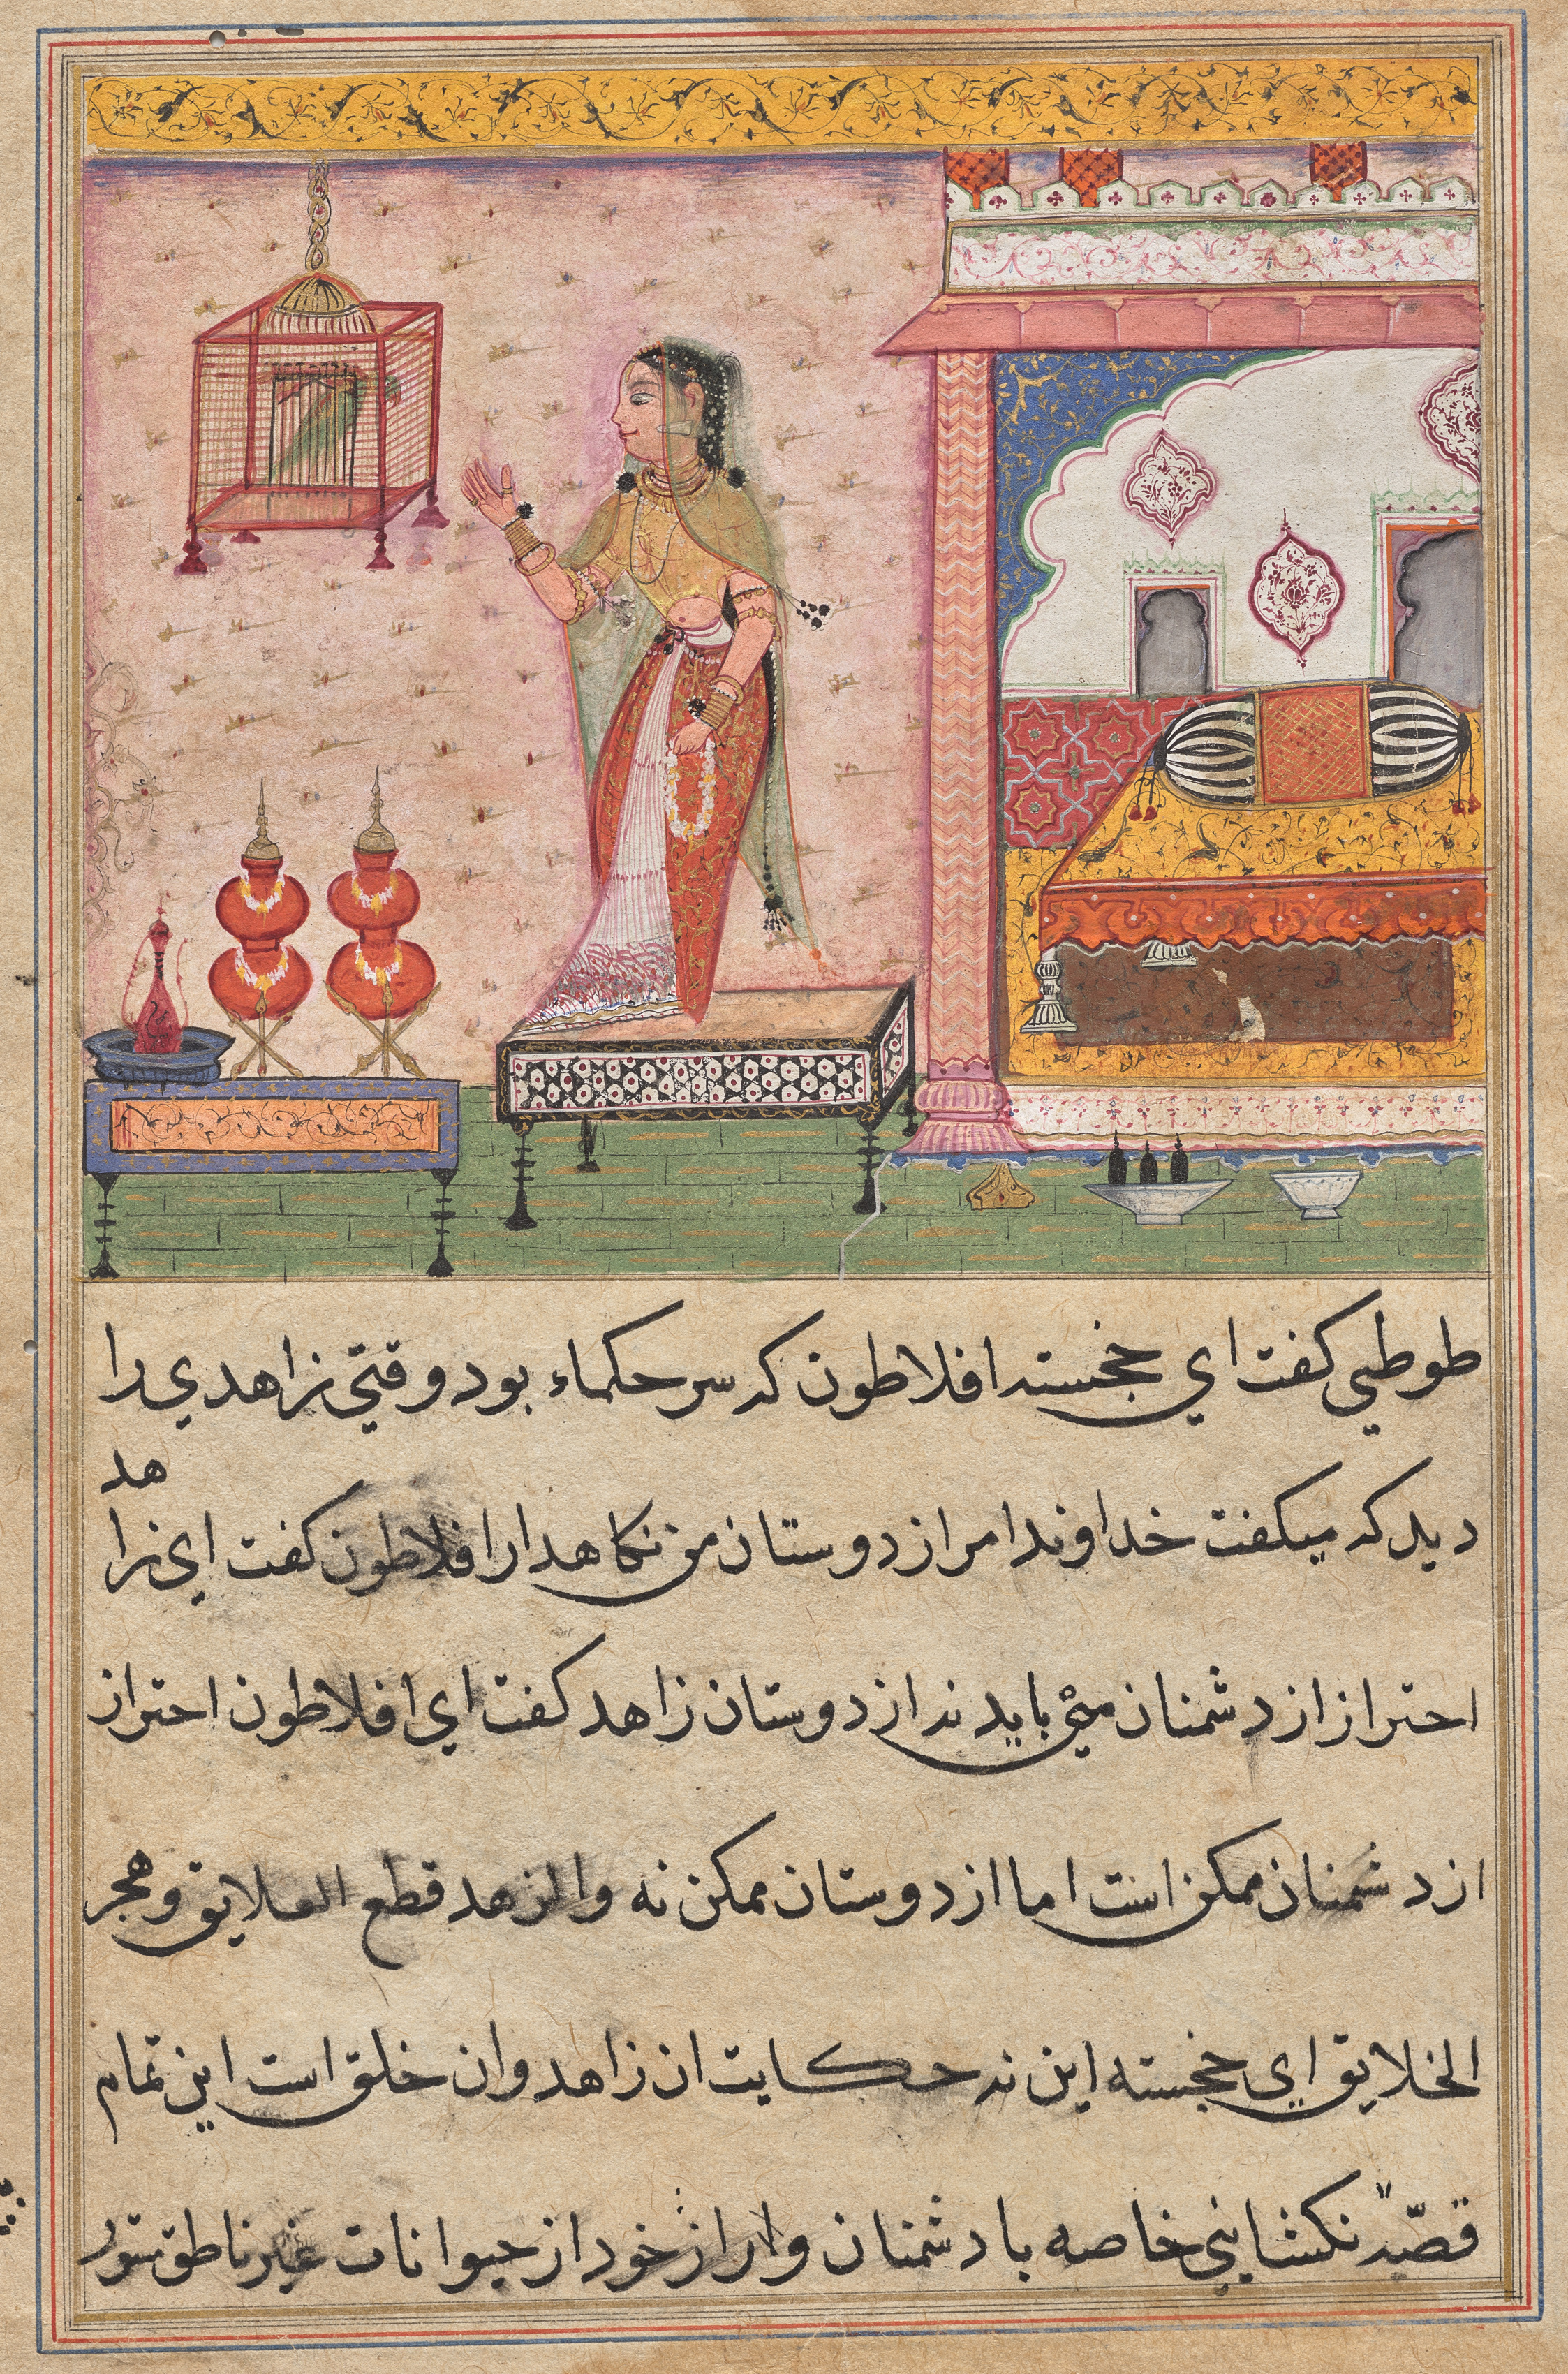 طوطي كفت اي خجسته افلاطون كه سر حكماء بود وقتي زاهدي را
ديد كه ميكفت خداوندا مرا از دوستان من نكاهدار افلاطون كفت اي زاهد
احتراز از دشمنان مي بايد نه از دوستان زاهد كفت اي افلاطون احتراز
از دشمنان ممكن است اما از دوستان ممكن نه والزهد قطع العلايق وهجر
الخلايق اي خجسته اين نه حكايت ان زاهد وان خلق است اين تمام
قصّه نكشايي خاصه با دشمنان و راز خود از حيوانات غير ناطق